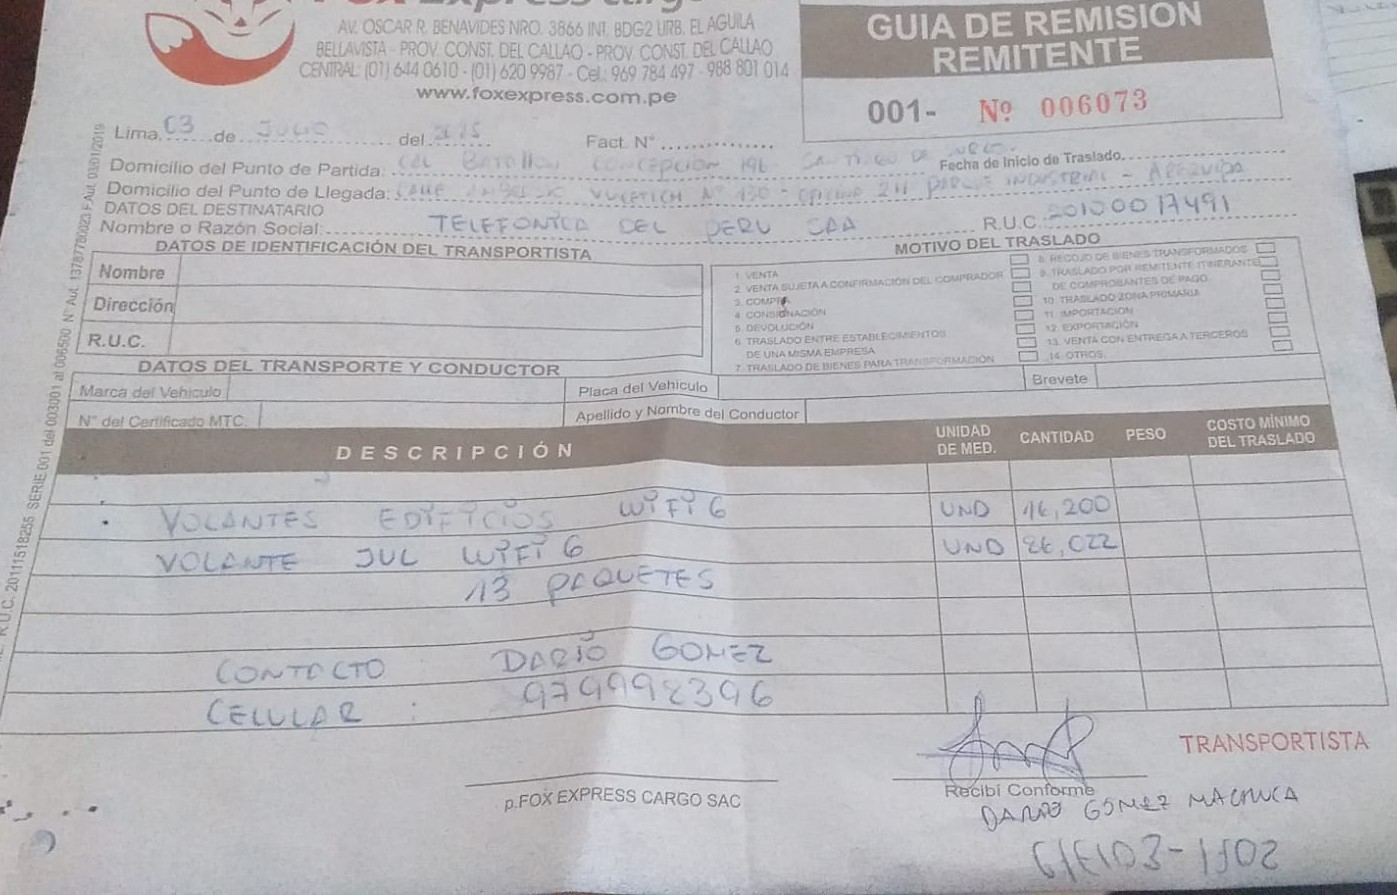 Fox Express Cargo
AV. OSCAR R. BENAVIDES NRO. 3866 INT. BDG2 URB. EL AGUILA
BELLAVISTA - PROV. CONST. DEL CALLAO - PROV. CONST. DEL CALLAO
CENTRAL: (01) 644 0610 - (01) 620 9987 - Cel.: 969 784 497 - 988 801 014
www.foxexpress.com.pe
GUIA DE REMISION
REMITENTE
001- Nº 006073
Lima, 03 de JULIO del 2025 Fact. N°
Domicilio del Punto de Partida: CAL BATALLON CONCEPCION 196 SANTIAGO DE SURCO Fecha de Inicio de Traslado
Domicilio del Punto de Llegada: CALLE VUCETICH N° 130 - OFICINA 211 PARQUE INDUSTRIAL - AREQUIPA
DATOS DEL DESTINATARIO
Nombre o Razón Social: TELEFONICA DEL PERU SAA R.U.C. 20100017491
DATOS DE IDENTIFICACIÓN DEL TRANSPORTISTA
Nombre
Dirección
R.U.C.
MOTIVO DEL TRASLADO
1. VENTA
2. VENTA SUJETA A CONFIRMACIÓN DEL COMPRADOR
3. COMPRA
4. CONSIGNACIÓN
5. DEVOLUCIÓN
6. TRASLADO ENTRE ESTABLECIMIENTOS
DE UNA MISMA EMPRESA
7. TRASLADO DE BIENES PARA TRANSFORMACIÓN
8. RECOJO DE BIENES TRANSFORMADOS
9. TRASLADO POR REMITENTE ITINERANTE
DE COMPROBANTES DE PAGO
10. TRASLADO ZONA PRIMARIA
11. IMPORTACION
12. EXPORTACIÓN
13. VENTA CON ENTREGA A TERCEROS
14. OTROS
DATOS DEL TRANSPORTE Y CONDUCTOR
Marca del Vehículo Placa del Vehículo Brevete
N° del Certificado MTC. Apellido y Nombre del Conductor
DESCRIPCIÓN UNIDAD DE MED. CANTIDAD PESO COSTO MÍNIMO DEL TRASLADO
VOLANTES EDIFICIOS WIFI 6 UND 16,200
VOLANTE JUL WIFI 6 UND 26,022
13 PAQUETES
CONTACTO DARIO GOMEZ
CELULAR : 979992396
p.FOX EXPRESS CARGO SAC
Recibí Conforme
TRANSPORTISTA
DARIO GOMEZ MACHUCA
R.U.C. 20111518255 SERIE 001 del 003001 al 006500 N° Aut. 13787780023 F.Aut. 03/01/2019